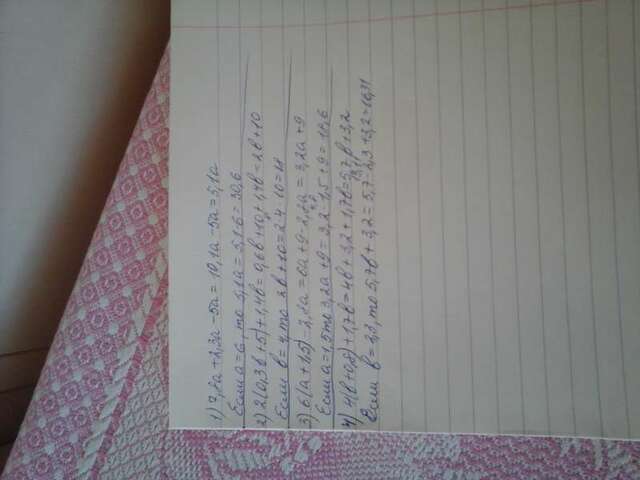 1) 7,8a + 2,3a - 5a = 10,1a - 5a = 5,1a
Если a = 6, то 5,1a = 5,1·6 = 30,6
2) 2(0,3b+5)+1,4b = 0,6b+10+1,4b = 2b+10
Если b = 4, то 2b+10 = 2·4·10 = 18
3) 6(a+1,5) - 2,8a = 6a+9-2,8a = 3,2a+9
Если a = 1,5 то 3,2a+9 = 3,2·1,5+9 =
4) 4(b+0,8)+1,7b = 4b+3,2+1,7b = 5,7b+3,2
Если b = то 5,7b+3,2 = 5,7·2,3+3,2 =